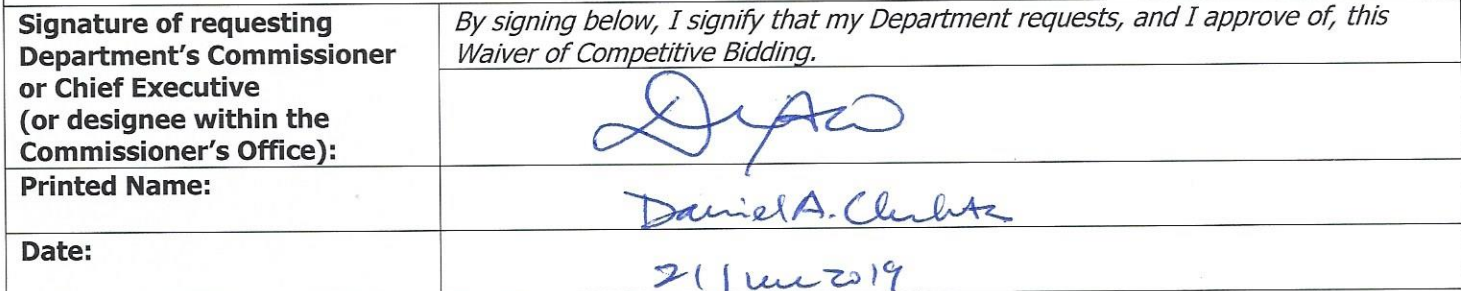 Signature of requesting
Department's Commissioner
or Chief Executive
(or designee within the
Commissioner's Office):
By signing below, I signify that my Department requests, and I approve of, this
Waiver of Competitive Bidding.
Printed Name:
Daniel A.
Date:
21 June 2019